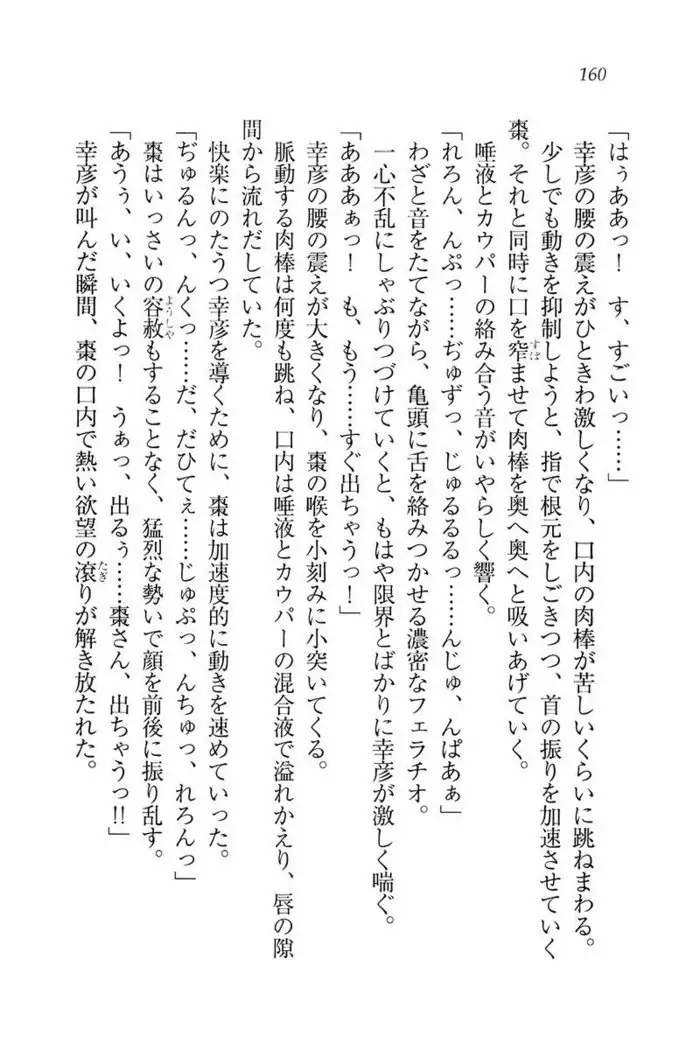 160
「はぅああっ！　す、すごいっ……」
　幸彦の腰の震えがひときわ激しくなり、口内の肉棒が苦しいくらいに跳ねまわる。
　少しでも動きを抑制しようと、指で根元をしごきつつ、首の振りを加速させていく
棗。それと同時に口を窄ませて肉棒を奥へ奥へと吸いあげていく。
すぼ
　唾液とカウパーの絡み合う音がいやらしく響く。
「れろん、んぷっ……ぢゅずっ、じゅるるるっ……んじゅ、んぱあぁ」
　わざと音をたてながら、亀頭に舌を絡みつかせる濃密なフェラチオ。
　一心不乱にしゃぶりつづけていくと、もはや限界とばかりに幸彦が激しく喘ぐ。
「あああぁっ！　も、もう……すぐ出ちゃうっ！」
　幸彦の腰の震えが大きくなり、棗の喉を小刻みに小突いてくる。
　脈動する肉棒は何度も跳ね、口内は唾液とカウパーの混合液で溢れかえり、唇の隙
間から流れだしていた。
　快楽にのたうつ幸彦を導くために、棗は加速度的に動きを速めていった。
「ぢゅるんっ、んくっ……だ、だひてぇ……じゅぷっ、んちゅっ、れろんっ」
　棗はいっさいの容赦もすることなく、猛烈な勢いで顔を前後に振り乱す。
ようしゃ
「あうぅ、い、いくよっ！　うぁっ、出るぅ……棗さん、出ちゃうっ!!」
　幸彦が叫んだ瞬間、棗の口内で熱い欲望の滾りが解き放たれた。
たぎ